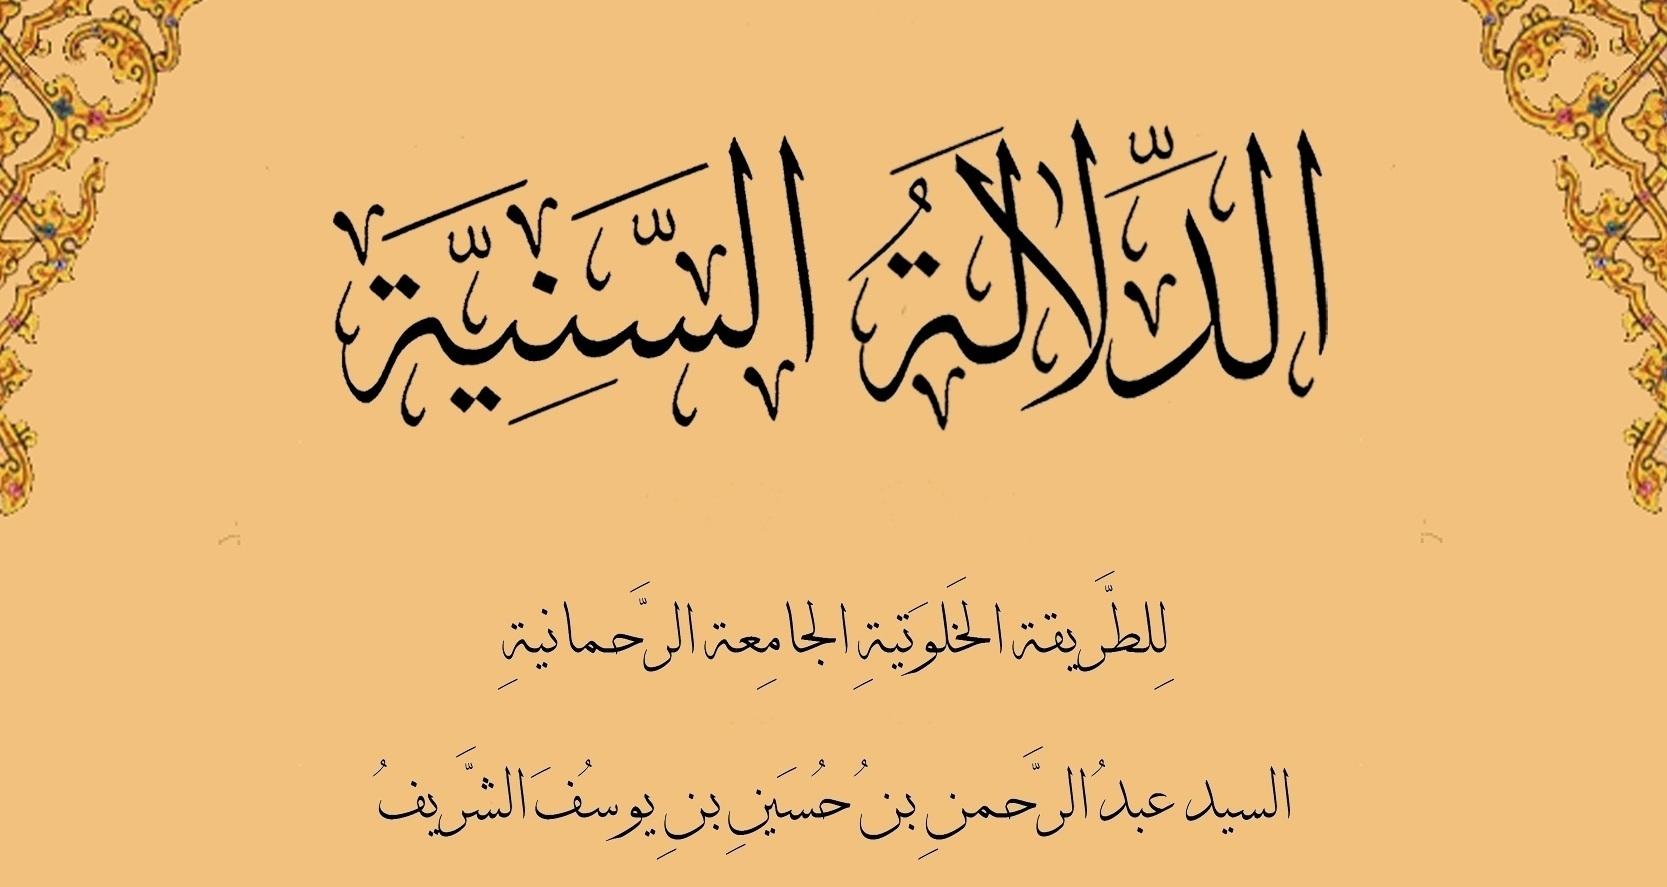 الدِّلَالَةُ السَّنِيَّة
لِلطَّرِيقة الخَلوَتيةِ الجامِعة الرَّحمانيةِ
السيد عبدُ الرَّحمنِ بنُ حُسَينِ بنِ يوسُفَ الشَّريفُ